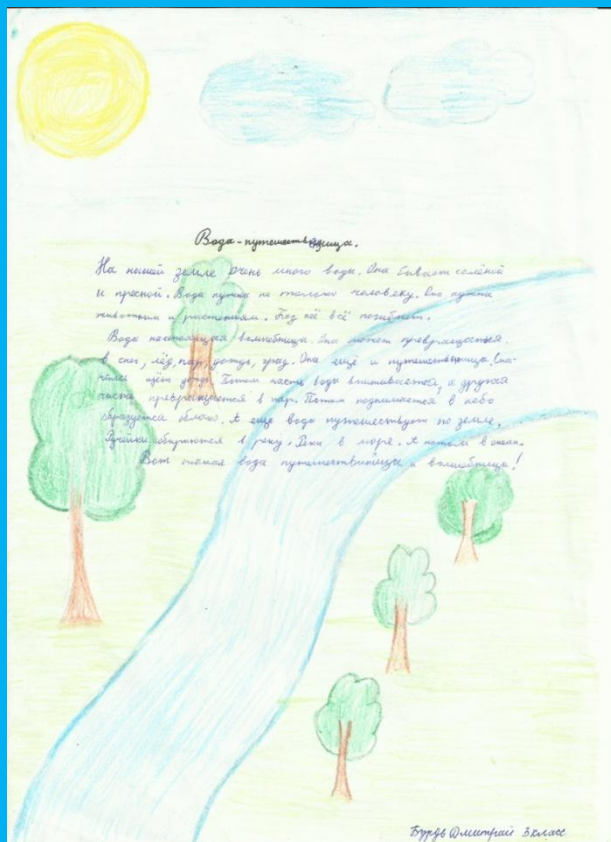 Вода-путешественница.
На нашей земле очень много воды. Она бывает солёной
и пресной. Вода нужна не только человеку. Она нужна
животным и растениям. Без неё всё погибнет.
Вода настоящая волшебница. Она может превращаться
в снег, лёд, пар, дождь, град. Она ещё и путешественница. Сна-
чала идёт дождь. Потом часть воды впитывается, а другая
часть превращается в пар. Потом поднимается в небо
образуется облако. А еще вода путешествует по земле.
Ручейки собираются в реку. Реки в море. А потом в океан.
Вот такая вода путешественница и волшебница!
Бурдь Дмитрий 3 класс